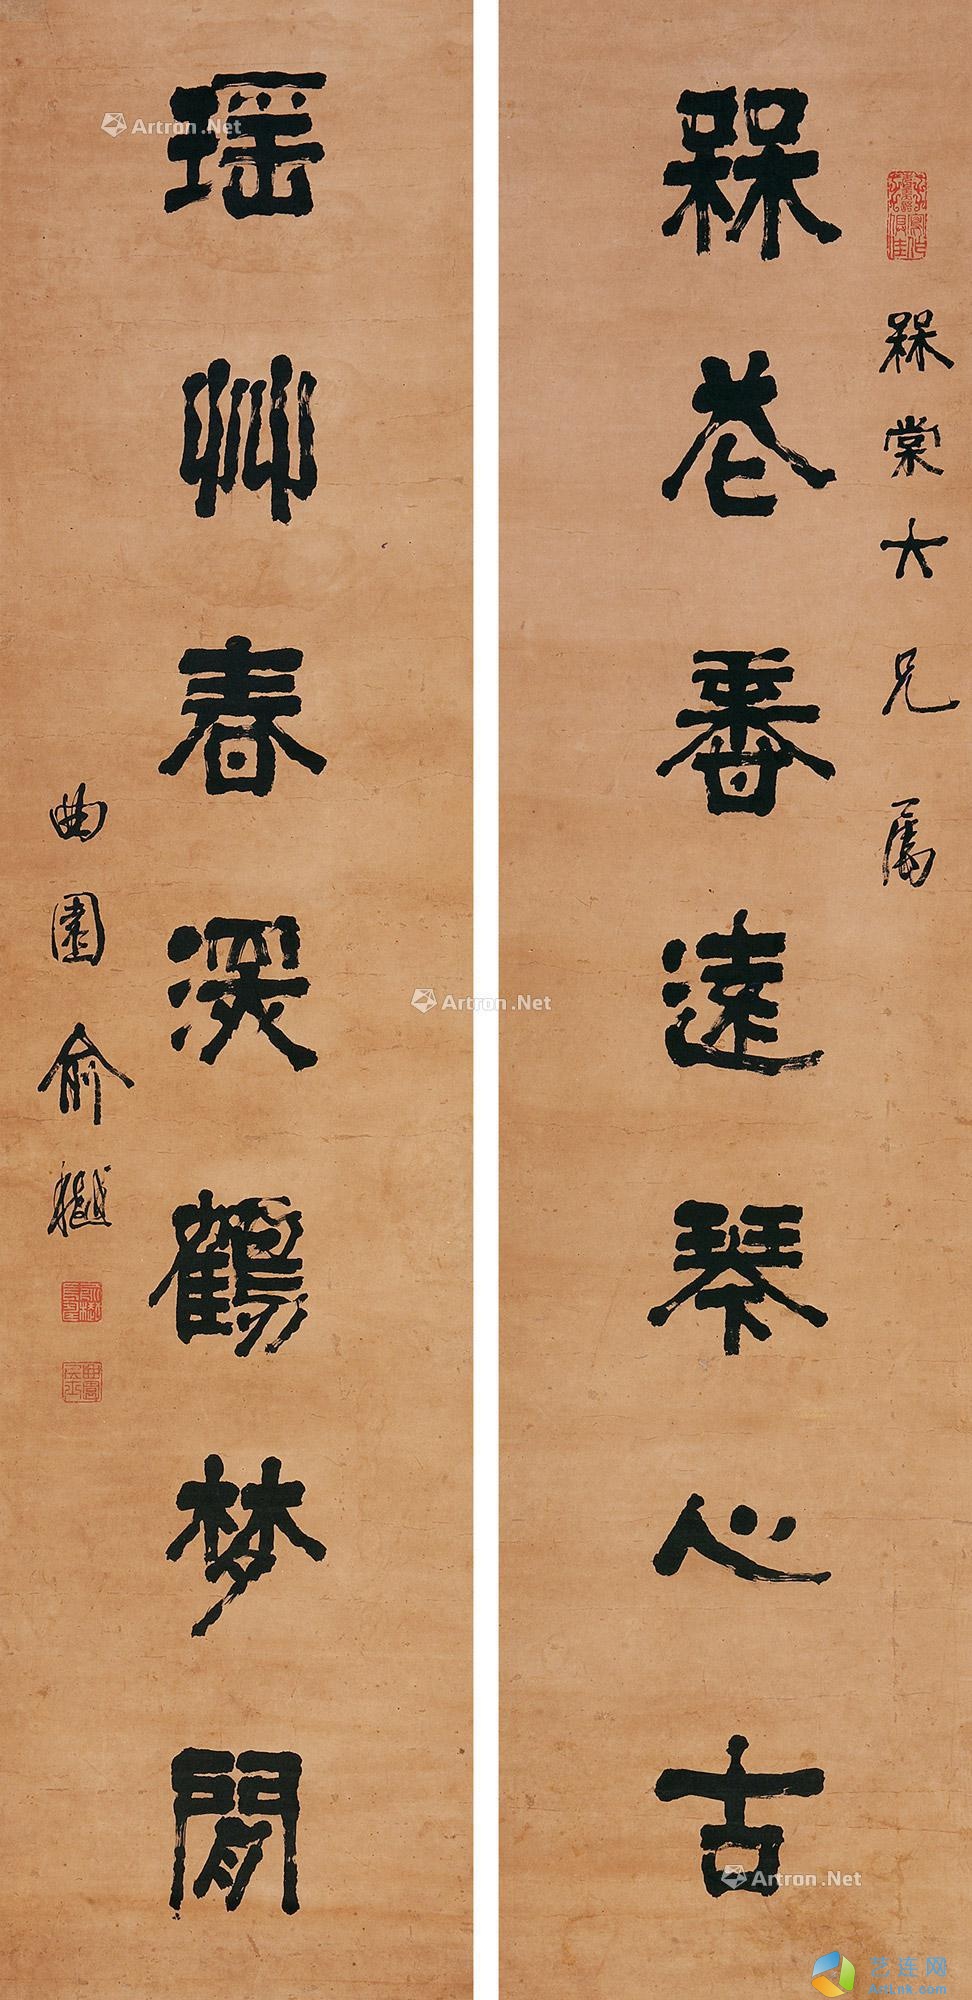 槑棠大兄属
槑花香遠琴心古
瑶艸春深鶴梦閒
曲園俞樾
Artron.Net
Artron.Net
Artron.Net
艺连网
ArtLnk.com